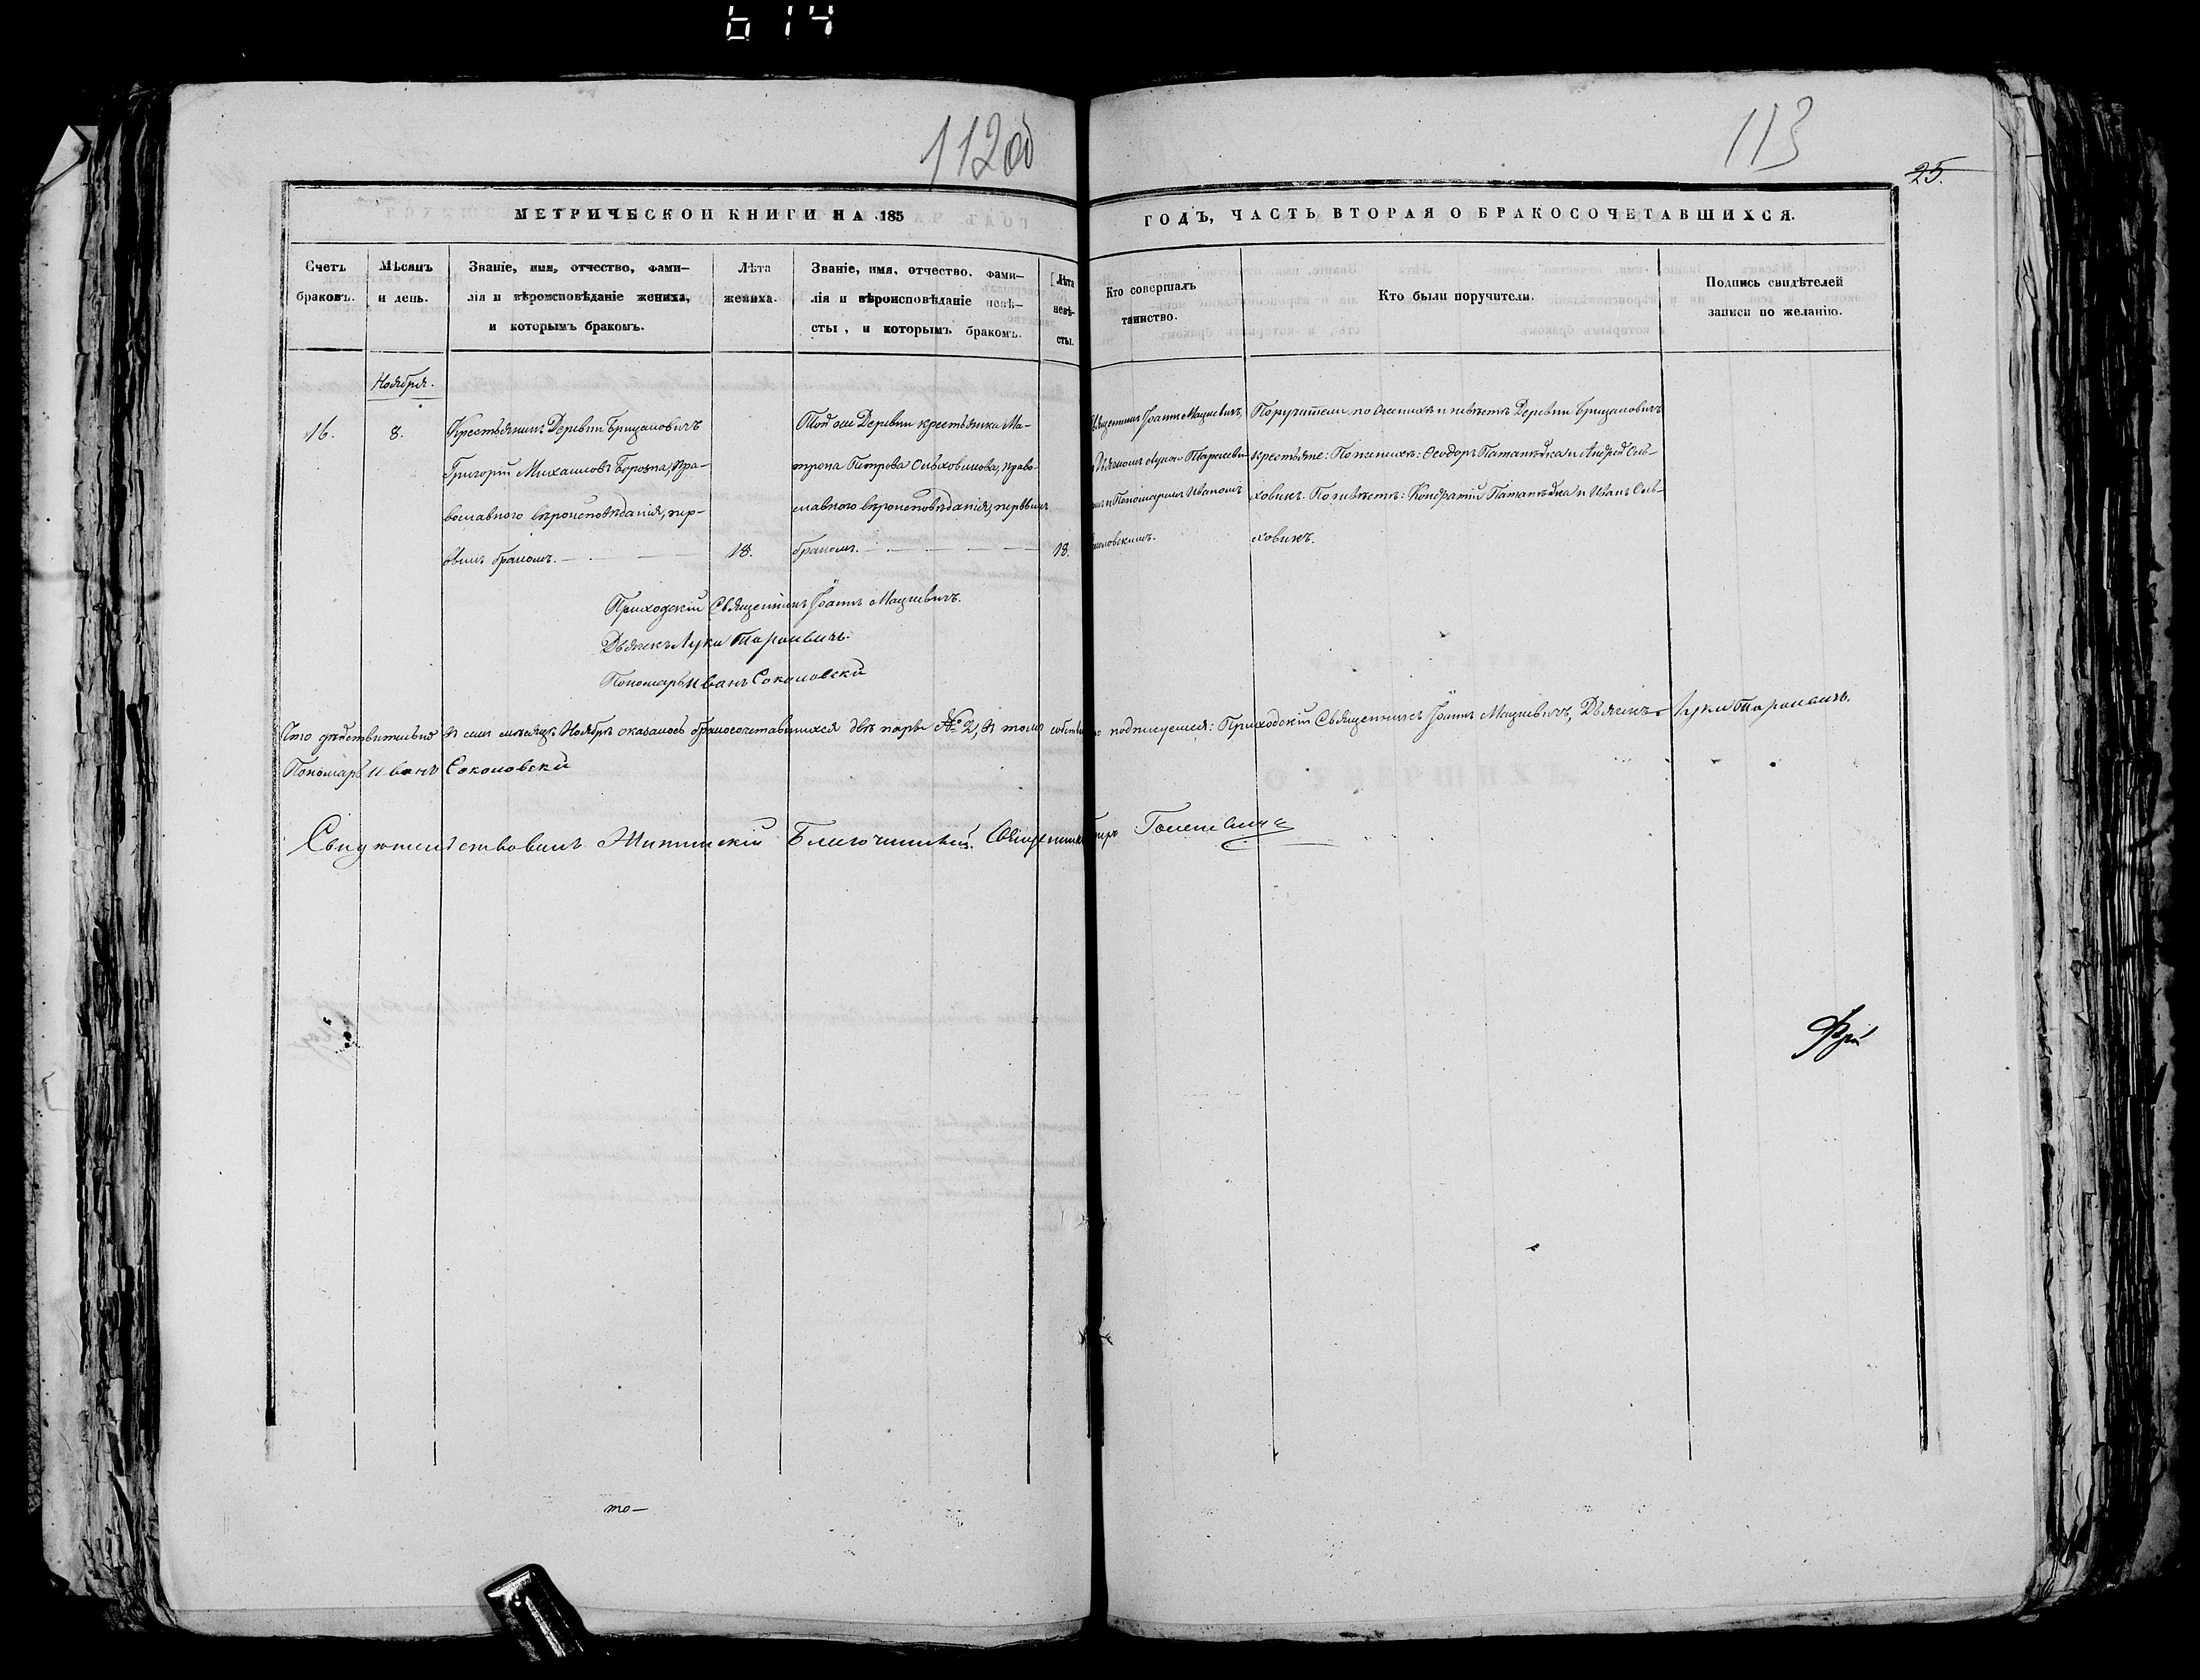 614
112об
113
25.
МЕТРИЧЕСКОЙ КНИГИ НА 185
ГОДЪ, ЧАСТЬ ВТОРАЯ О БРАКОСОЧЕТАВШИХСЯ.
Счетъ браковъ.
Мѣсяцъ и день.
Званіе, имя, отчество, фами-
лія и вѣроисповѣданіе жениха,
и которымъ бракомъ.
Лѣта
жениха.
Званіе, имя, отчество, фами-
лія и вѣроисповѣданіе невѣ-
сты, и которымъ бракомъ.
Лѣта
невѣ-
сты.
Кто совершалъ
таинство.
Кто были поручители.
Подпись свидѣтелей
записи по желанію.
Ноября.
16.
8.
Крестьянинъ Деревни Брицаловичъ
Григорій Михаиловъ Борозна, пра-
вославнаго вѣроисповѣданія, пер-
вымъ бракомъ.
18.
Той же Деревни крестьянка Ма-
трона Петрова Ольховикова, право-
славнаго вѣроисповѣданія, первымъ
бракомъ.
18.
Іоаннъ Мацкевичъ,
Дьячкомъ Лукою
и Пономаремъ Иваномъ
Поручители по женихѣ и невѣстѣ Деревни Брицаловичъ
крестьяне: По женихѣ: Ѳеодоръ и Андрей Оль-
ховикъ. По невѣстѣ: Кондратій и Иванъ Оль-
ховикъ.
Приходскій Священникъ Іоаннъ Мацкевичъ.
Дьячекъ Лука Тарасевичъ.
Пономарь Иванъ Соколовскій
Что дѣйствительно въ семъ мѣсяцѣ Ноябрѣ оказалось бракосочетавшихся двѣ пары № 2, въ томъ подписуемся: Приходскій Священникъ Іоаннъ Мацкевичъ, Дьячекъ Лука Тарасевичъ.
Пономарь Иванъ Соколовскій
Свидѣтельствовалъ Благочинный Священникъ
то-